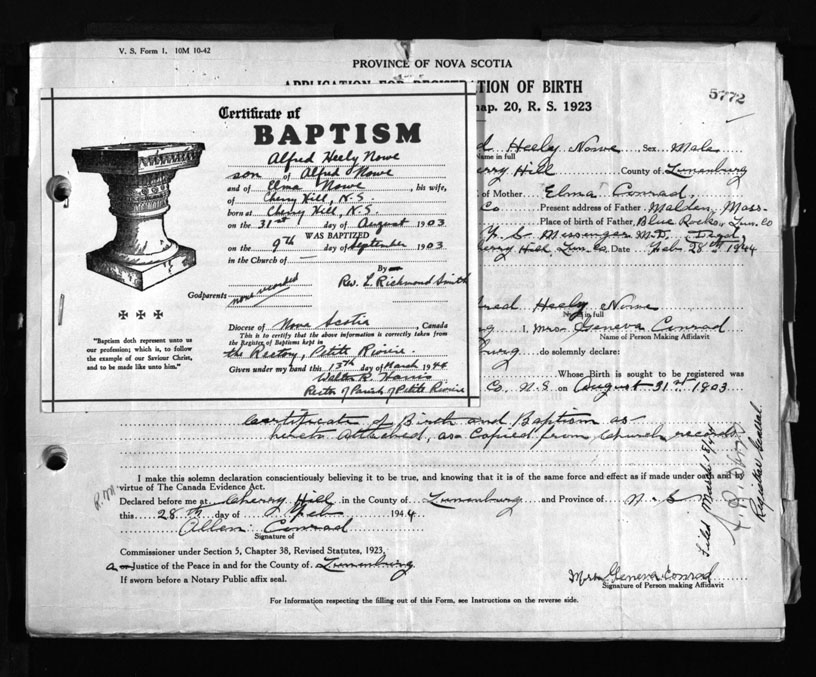 V. S. Form 1. 10M 10-42
PROVINCE OF NOVA SCOTIA
APPLICATION FOR REGISTRATION OF BIRTH
hap. 20, R. S. 1923
5772
Certificate of
BAPTISM
Alfred Heely Nowe
son of Alfred Nowe
and of Elma Nowe, his wife,
of Cherry Hill, N.S.
born at Cherry Hill, N.S.
on the 31st day of August 1903
WAS BAPTIZED
on the 9th day of September 1903
in the Church of —
By
Rev. L. Richmond Smith
Godparents none recorded
Diocese of Nova Scotia, Canada
This is to certify that the above information is correctly taken
from the Register of Baptisms kept in
the Rectory, Petite Riviere.
Given under my hand this 13th day of March 1944
Walter R. Harris
Rector of Parish of Petite Riviere
"Baptism doth represent unto us
our profession; which is, to follow
the example of our Saviour Christ,
and to be made like unto him."
d Heely Nowe Sex Male
Name in full
erry Hill County of Lunenburg
of Mother Elma Conrad
Co Present address of Father Malden, Mass.
Place of birth of Father, Blue Rocks, Lun. Co
Messenger M.D.
erry Hill, Lun. Co. Date Feb. 28th 1944
red Heely Nowe
Name in full
I, Mrs. Geneva Conrad
Name of Person Making Affidavit
burg do solemnly declare:
Whose Birth is sought to be registered was
Co. N.S. on August 31st 1903
Certificate of Birth and Baptism as
hereto attached, as Copied from Church records
I make this solemn declaration conscientiously believing it to be true, and knowing that it is of the same force and effect as if made under oath and by
virtue of The Canada Evidence Act.
Declared before me at Cherry Hill in the County of Lunenburg and Province of N.S.
this 28th day of Feb 1944
Allen Conrad
Signature of
Commissioner under Section 5, Chapter 38, Revised Statutes, 1923.
a Justice of the Peace in and for the County of Lunenburg
If sworn before a Notary Public affix seal.
Mrs Geneva Conrad
Signature of Person making Affidavit
For Information respecting the filling out of this Form, see Instructions on the reverse side.
Filed March 18/44
Registrar General